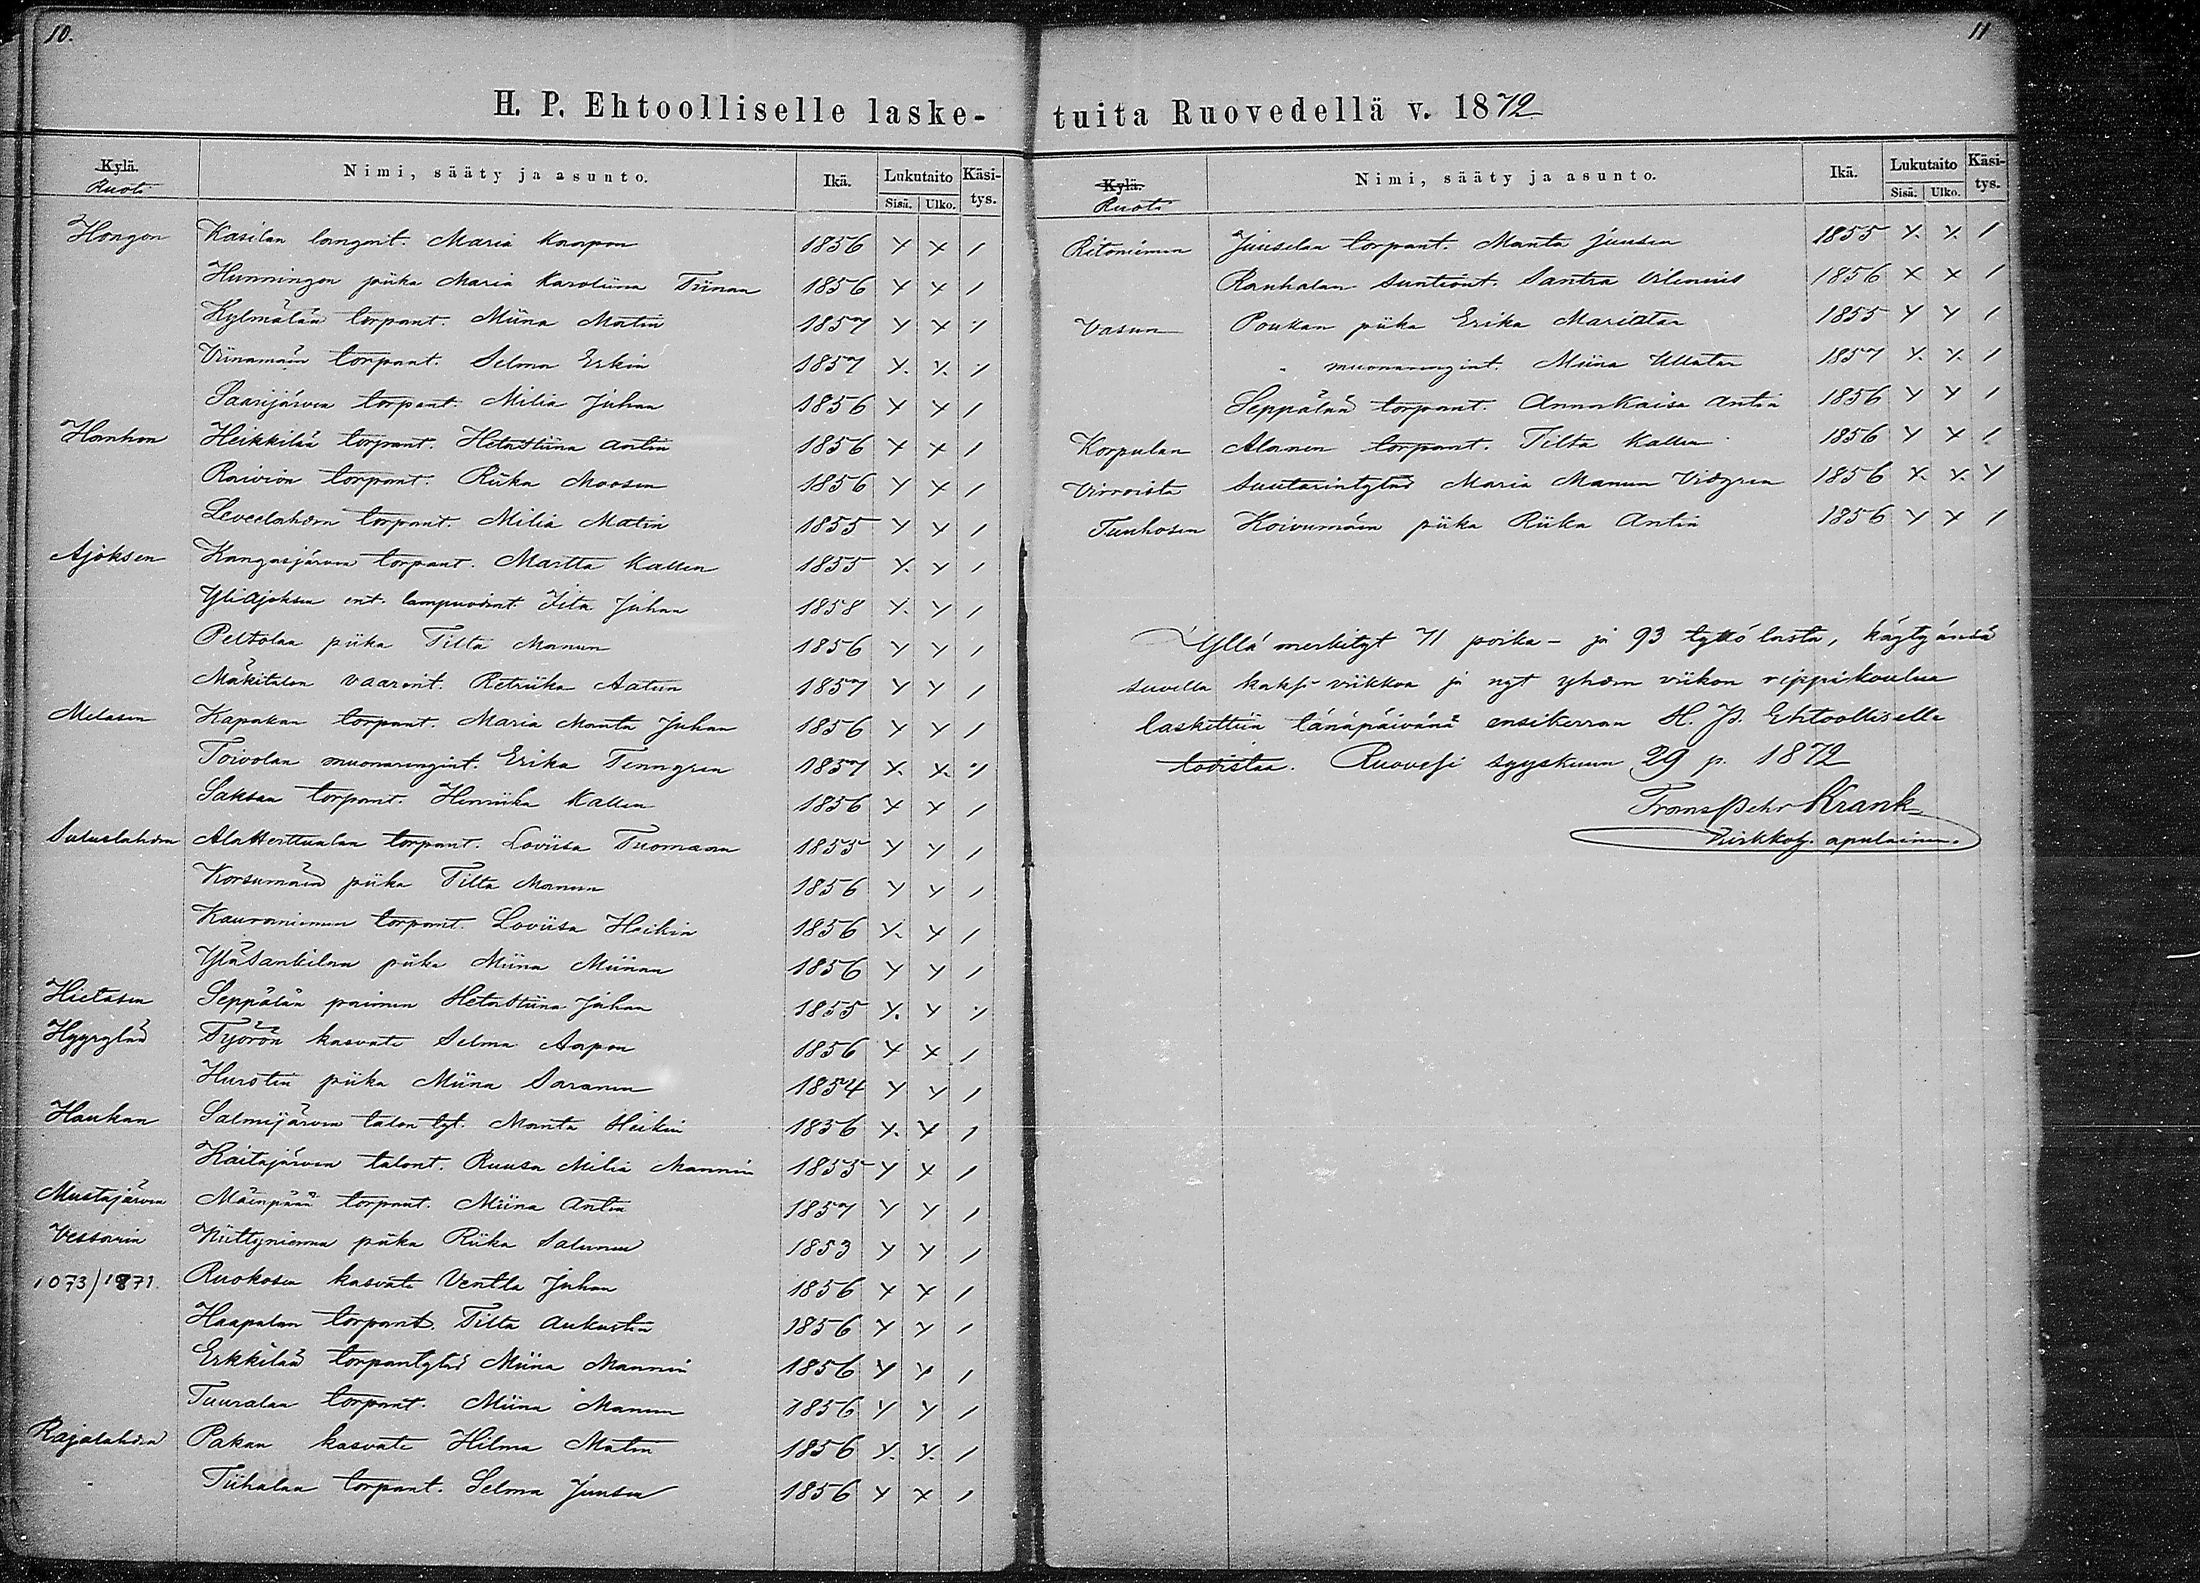 10.
H. P. Ehtoolliselle laske-
Kylä. Nimi, sääty ja asunto. Ikä. Lukutaito Käsi-
Ruoto Sisä. Ulko. tys.
Hongon Kasilan langorit. Maria Kaapon 1856 x x /
Hunningon piika Maria Karoliina Tiinan 1856 x x /
Kylmälän torpant. Miina Matin 1857 x x ·/.
Viinamäin torpant. Selma Erkin 1857 x. x. ·/.
Saarijärven torpant. Milia Juhan 1856 x x /
Hanhon Heikkilän torpant. HetaStiina Antin 1856 x x /
Raivion torpant. Riika Moosen 1856 x x /
torpant. Milia Matin 1855 x x /
Ajoksen Kangasjärven torpant. Martta Kallen 1855 x. x /
YliAjoksen ent. lampuodint. Iita Juhan 1858 x. x /
Peltolan piika Tilta Manun 1856 x x /
Mäkitalon vaarint. Retriika Aatun 1857 x x /
Melasen Kapakan torpant. Maria Manta Juhan 1856 x x /
Toivolan muonarengint. Erika Tenngren 1857 x. x. ·/.
Saksan torpant. Henriika Kallen 1856 x x /
AlaHerttualan torpant. Loviisa Tuomaan 1855 x x /
Korsumäen piika Tilta Manun 1856 x x /
Kauraniemen torpant. Loviisa Heikin 1856 x. x /
YläSankilan piika Miina Miinan 1856 x x /
Hietasen Seppälän paimen HetaStiina Juhan 1855 x. x ·/.
Hyyrylän Työrön kasvate Selma Aapon 1856 x x /
Hurstin piika Miina Saranen 1854 x x /
Haukan Salmijärven talon tyt. Manta Heikin 1856 x. x /
Kaitajärven talont. Ruusa Milia Mannin 1855 x x /
Mustajärven Mäenpään torpant. Miina Antin 1857 x x /
Vessarin Niittyniemen piika Riika Salmen 1853 x x /
1073/1871. Ruokosen kasvate Ventla Juhan 1856 x x /
Haapalan torpant. Tilta Aukustin 1856 x x /
Erkkilän torpantytär Miina Mannin 1856 x x /
Tuuralan torpant. Miina Manun 1856 x x /
Rajalahden Pakan kasvate Hilma Matin 1856 x. x. /
Tiihalan torpant. Selma Juusen 1856 x x /
11
tuita Ruovedellä v. 1872
Kylä. Nimi, sääty ja asunto. Ikä. Lukutaito Käsi-
Ruoto Sisä. Ulko. tys.
Ritoniemen Juuselan torpant. Manta Juusen 1855 x. x. /
Rauhalan suntiont. Santra Vilenius 1856 x x /
Vasun Poukan piika Erika Mariatar 1855 x x /
" muonarengint. Miina Ullatar 1857 x. x. /
Seppälän torpant. AnnaKaisa Antin 1856 x x /
Korpulan Alanen torpant. Tilta Kallen 1856 x x /
Virroista Suutarintytär Maria Manun Vidgren 1856 x. x. x
Tunhosen Koivumäen piika Riika Antin 1856 x x /
Yllä merkityt 71 poika- ja 93 tyttö lasta, käytyänsä
suvella kaksi viikkoa ja nyt yhden viikon rippikoulua
laskettiin tänäpäivänä ensikerran H. P. Ehtoolliselle
todistaa. Ruovesi syyskuun 29 p. 1872
Frans Pehr Krank
Kirkkoh. apulainen.